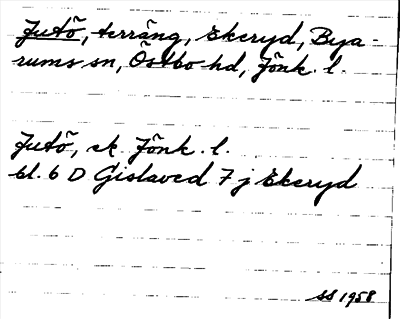 Jutö, terräng, Ekeryd, Bya-
rums sn, Östbo hd, Jönk. l.
Jutö, ek. Jönk. l.
bl. 6 D Gislaved 7 j Ekeryd
SS 1958